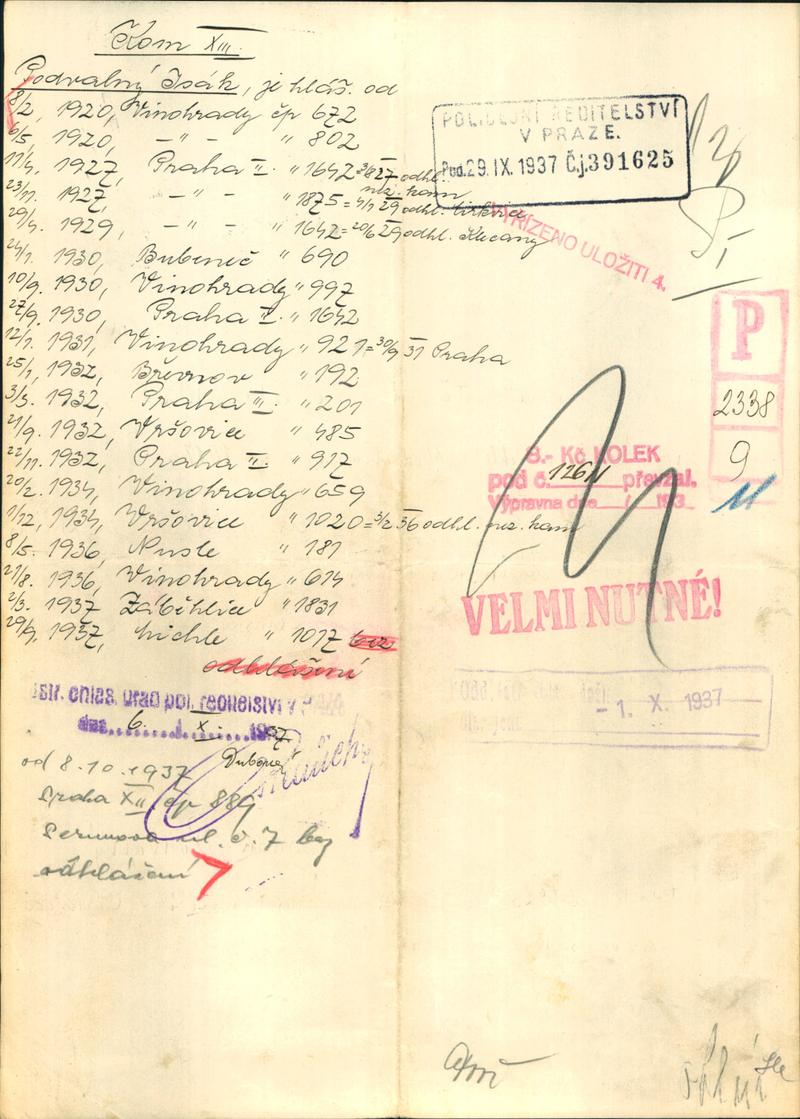 Kom XIII.
Podvalný Isák, je hláš. od
8/2, 1920, Vinohrady čp 672
6/5, 1920, -"- " 802
11/4, 1927, Praha II. " 1642 = 3/8 27 odhl.
nez. kam
23/11. 1927, -"- " 1875 = 4/1 29 odhl.
29/4. 1929, -"- " 1642 = 20/6 29 odhl. Klecany
24/1. 1930, Bubeneč " 690
10/9. 1930, Vinohrady " 997
27/9. 1930, Praha II. " 1642
12/1. 1931, Vinohrady " 921 = 30/9 31 Praha
25/1, 1932, Břevnov " 192
3/3. 1932, Praha II. " 201
21/9. 1932, Vršovice " 485
22/11. 1932, Praha II. " 917
20/2. 1934, Vinohrady " 659
1/12, 1934, Vršovice " 1020 = 3/2. 36 odhl. nez. kam
8/5. 1936, Nusle " 181
27/8. 1936, Vinohrady " 614
2/3. 1937 Záběhlice " 1831
29/9. 1937, Michle " 1017 bez
odhlášení
úřad pol. ředitelství v
dne 6. X. 1937
od 8.10.1937
Praha XII čp 889
Perunova ul. č. 7 bez
odhlášení
POLICEJNÍ ŘEDITELSTVÍ
V PRAZE.
Pod. 29. IX. 1937 Č.j. 391625
VYŘÍZENO ULOŽITI 4.
P
2338
9
11
8.- Kč KOLEK
pod č. převzal.
Výpravna dne / 193
VELMI NUTNÉ!
- 1. X. 1937